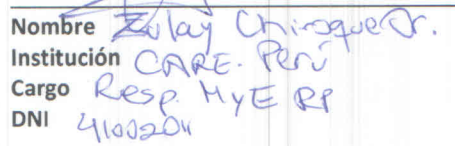 Nombre Zulay Chiroque Or.
Institución CARE. Perú
Cargo Resp. MyE RP
DNI